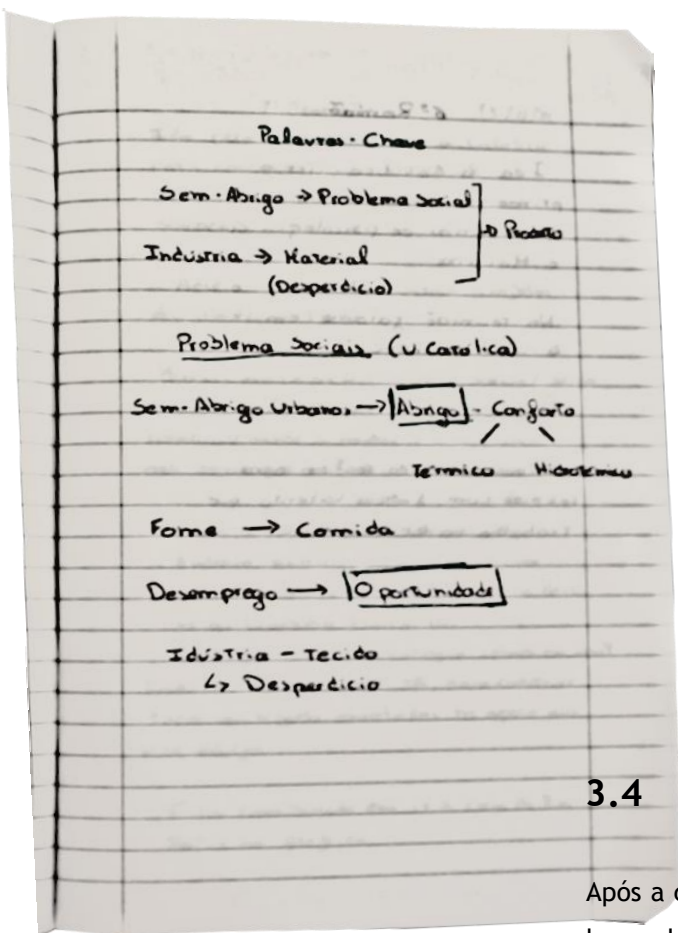 Palavras-Chave
Sem-Abrigo → Problema Social
→ Produto
Indústria → Material
(Desperdício)
Problema Sociais (U Católica)
Sem-Abrigo Urbanos → Abrigo - Conforto
Térmico Hidrotérmico
Fome → Comida
Desemprego → Oportunidade
Idústria - Tecido
↳ Desperdício
3.4
Após a